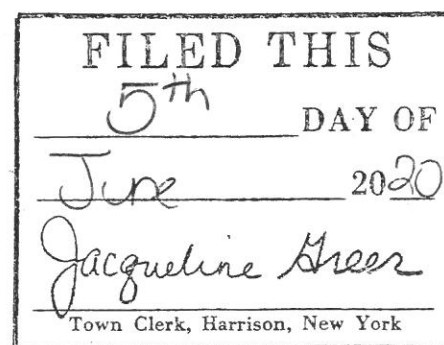 FILED THIS
5th DAY OF
June 2020
Jacqueline Greer
Town Clerk, Harrison, New York